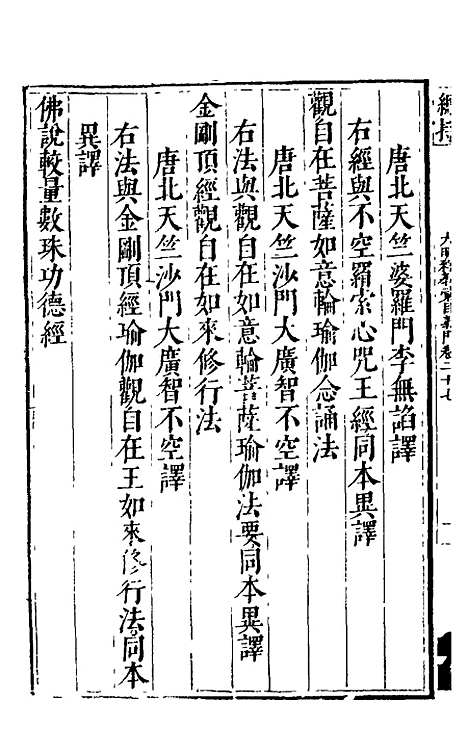 唐北天竺婆羅門李無諂譯
右經與不空羂索心咒王經同本異譯
觀自在菩薩如意輪瑜伽念誦法
唐北天竺沙門大廣智不空譯
右法與觀自在如意輪菩薩瑜伽法要同本異譯
金剛頂經觀自在如來修行法
唐北天竺沙門大廣智不空譯
右法與金剛頂經瑜伽觀自在王如來修行法同本
異譯
佛說較量數珠功德經